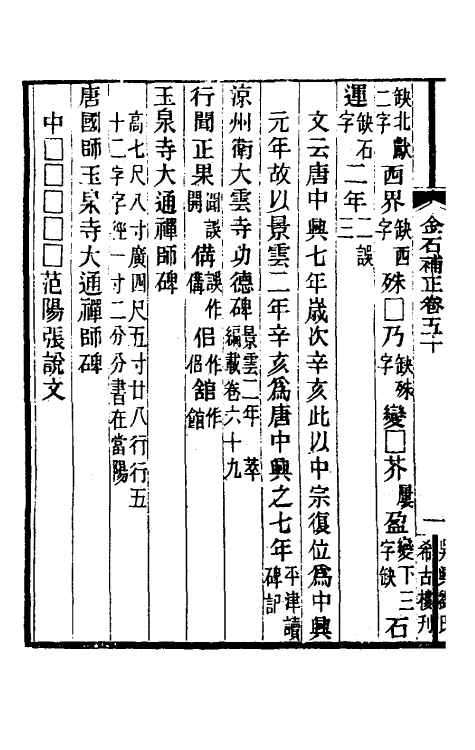 金石補正卷五十
一
希古樓刊
缺北二字獻西界缺西字殊□乃缺殊字變□芥屢盈變下三字缺石
運缺石字二年二誤三
文云唐中興七年歲次辛亥此以中宗復位爲中興
元年故以景雲二年辛亥爲唐中興之七年平津讀碑記
涼州衛大雲寺功德碑景雲二年萃編載卷六十九
行聞正果聞誤開俻誤作俻侣作侣舘作館
玉泉寺大通禪師碑
高七尺八寸廣四尺五寸廿八行行五
十二字字徑一寸二分分書在當陽
唐國師玉泉寺大通禪師碑
中□□□□□范陽張說文